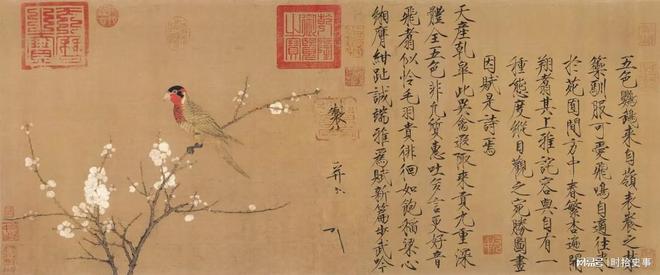 五色鸚鵡來自嶺表養之禁
籞馴服可愛飛鳴自適往來
於苑囿間方中春繁杏遍開
翔翥其上雅詫容與自有一
種態度縱目觀之宛勝圖畫
因賦是詩焉
天產乾皋此異禽遐陬來貢九重深
體全五色非凡質惠吐多言更好音
飛翥似憐毛羽貴徘徊如飽稻粱心
緗膺紺趾誠端雅為賦新篇步武吟
製
并
搜狐号@时拾史事